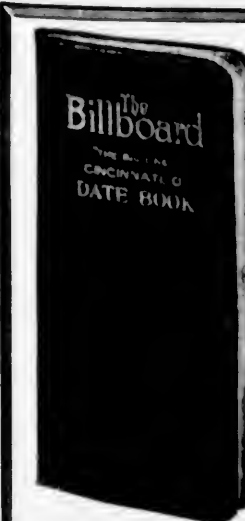 The
Billboard
CINCINNATI, O
DATE BOOK